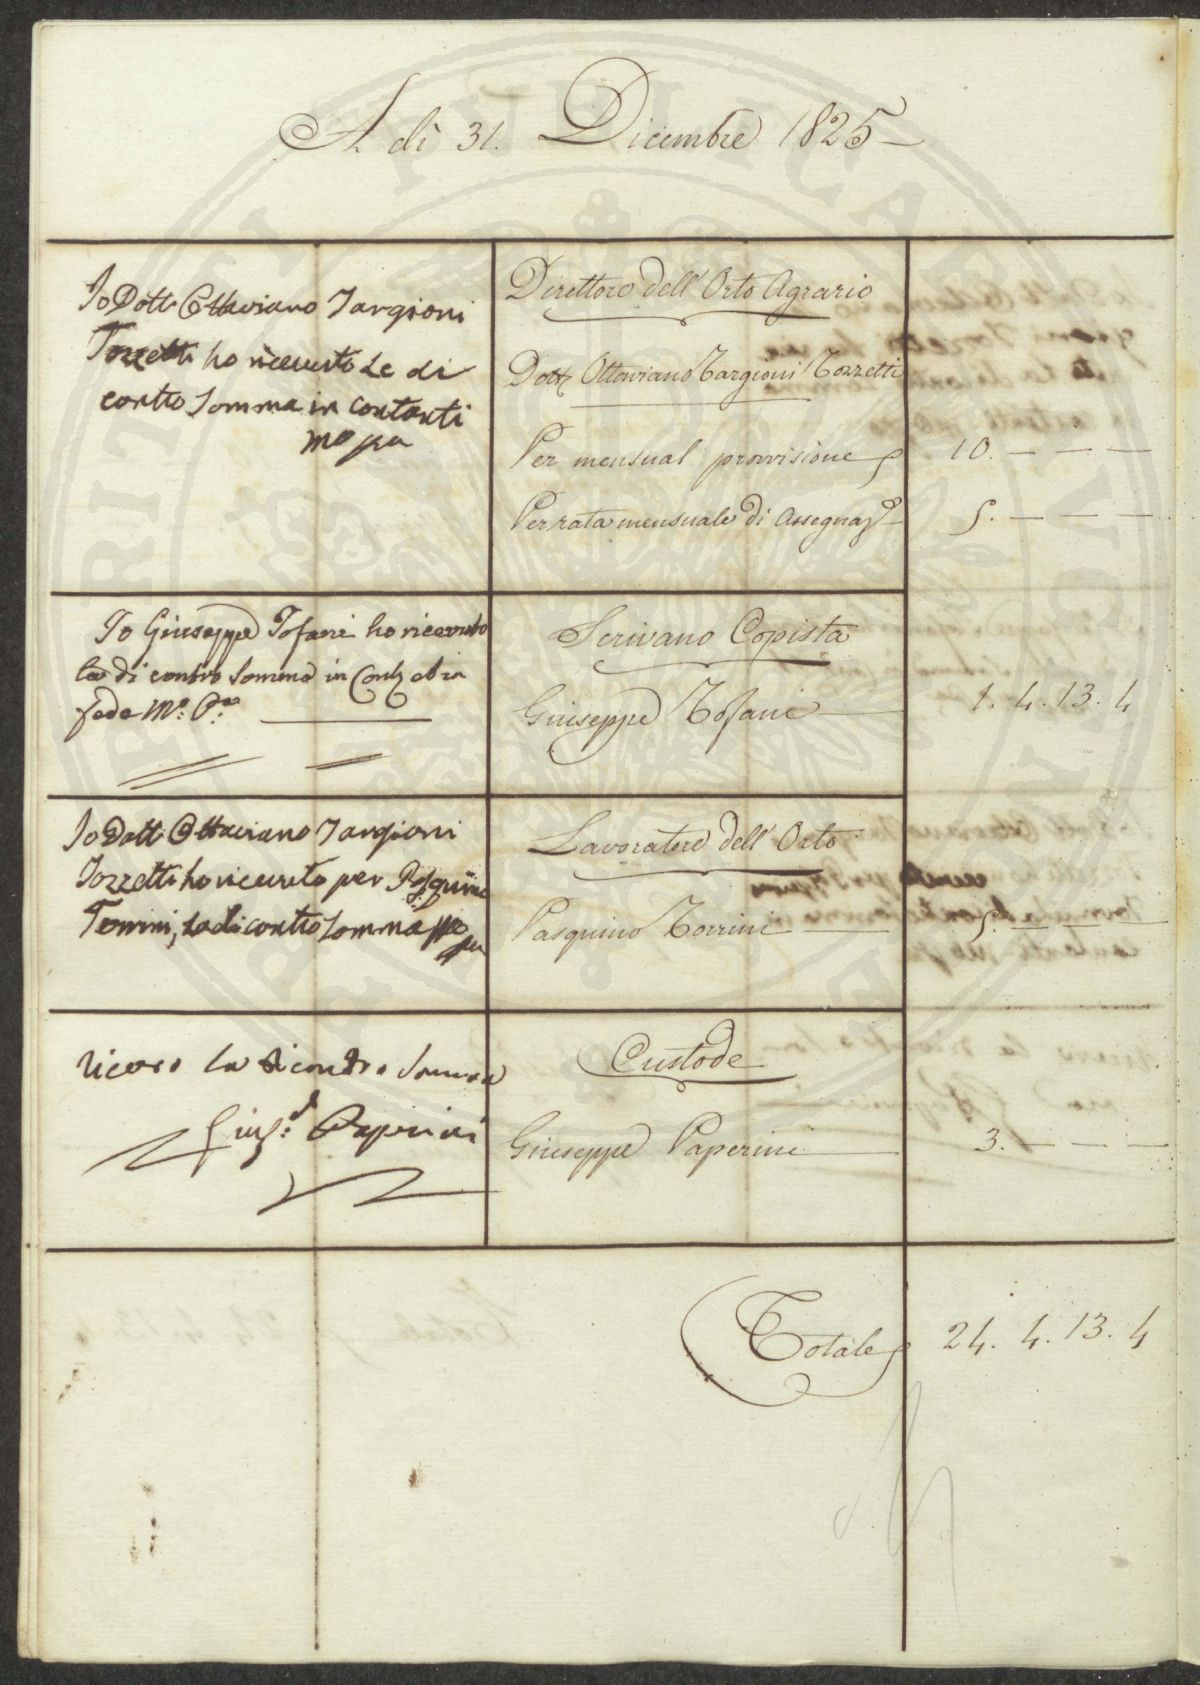 A dì 31. Dicembre 1825
Io Dott. Ottaviano Targioni
Tozzetti ho ricevuto Le di
contro Somma in contanti
Mo pa
Direttore dell' Orto Agrario
Dott. Ottaviano Targioni Tozzetti
Per mensual provvisione 10. — — —
Per rata mensuale di Assegnaz.e 5. — — —
Io Giuseppe Tofani ho ricevuto
la di contro Somma in Cont. ed in
fede Mo. Pa.
Scrivano Copista
Giuseppe Tofani — 1. 4. 13. 4
Io Dott. Ottaviano Targioni
Tozzetti ho ricevuto per Pasquino
Torrini, La di contro Somma
pa
Lavoratore dell' Orto
Pasquino Torrini — 5. — —
Ricevo La di contro Somma
Gius.e Paperini
Custode
Giuseppe Paperini — 3. — — —
Totale 24. 4. 13. 4